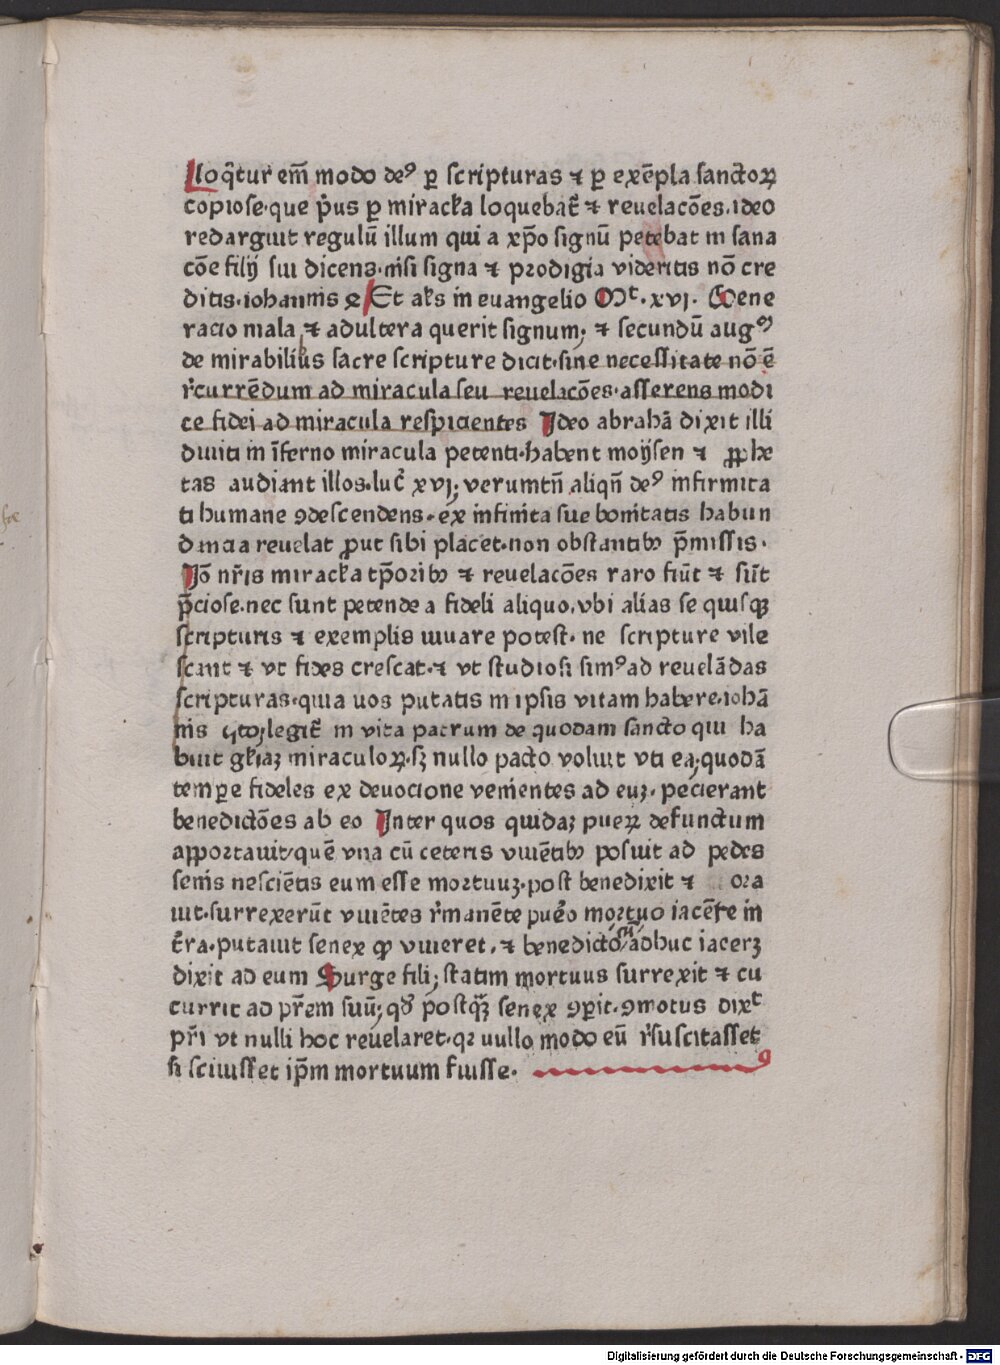 Loq̄tur em̄ modo deꝰ ꝑ scripturas ⁊ ꝑ exēpla sanctoꝝ
copiose·que pͥus ꝑ miracl̄a loquebat᷑ ⁊ reuelacōes.ideo
redarguit regulū illum qui a xp̄o signū petebat in sana
cōe filij sui dicens·nisi signa ⁊ prodigia videritis nō cre
ditis·iohannis ꝙ Et al̄s in euangelio Mᵗ·xvj· Gene
racio mala ⁊ adultera querit signum; ⁊ secundū augꝰ
de mirabilius sacre scripture dicit·sine necessitate nō ē
r̄currēdum ad miracula seu reuelacōes·asserens modi
ce fidei ad miracula respicientes Ideo abrahā dixit illi
diuiti in īferno miracula petenti·habent moysen ⁊ ꝓphe
tas audiant illos·luc̄ xvj; verumtn̄ aliqn̄ deꝰ infirmita
ti humane ꝯdescendens·ex infinita sue bonitatis habun
dancia reuelat ꝓut sibi placet·non obstantibꝫ p̄missis·
Jō nr̄is miracl̄a tp̄oribꝫ ⁊ reuelacōes raro fiūt ⁊ sūt
p̄ciose·nec sunt petende a fideli aliquo.vbi alias se quisqꝫ
scripturis ⁊ exemplis iuuare potest· ne scripture vile
scant ⁊ vt fides crescat·⁊ vt studiosi simꝰ ad reuelādas
scripturas·quia uos putatis in ipsis vitam habere.iohā
nis legit᷑ in vita patrum de quodam sancto qui ha
buit gl̄iaꝫ miraculoꝝ·sꝫ nullo pacto voluit vti ea;quodā
tempe fideles ex deuocione venientes ad euꝫ· pecierant
benedictōes ab eo Inter quos quidaꝫ pueꝝ defunctum
apportauit/quē vna cū ceteris viuētibꝫ posuit ad pedes
senis nesciētis eum esse mortuuꝫ·post benedixit ⁊ ora
uit·surrexerūt viuētes r̄manēte pueͦo mortuo iacēte in
t̄ra·putauit senex ꝙ viueret.⁊ benedictōeꝫ adhuc iacerꝫ
dixit ad eum Surge fili; statim mortuus surrexit ⁊ cu
currit ad pr̄em suū; qd̕ postqꝫ̄ senex ꝯꝑit·ꝯmotus dixᵗ
pr̄i vt nulli hoc reuelaret·qꝛ nullo modo eū r̄suscitasset
si sciuisset ip̄m mortuum fuisse·
Digitalisierung gefördert durch die Deutsche Forschungsgemeinschaft - DFG